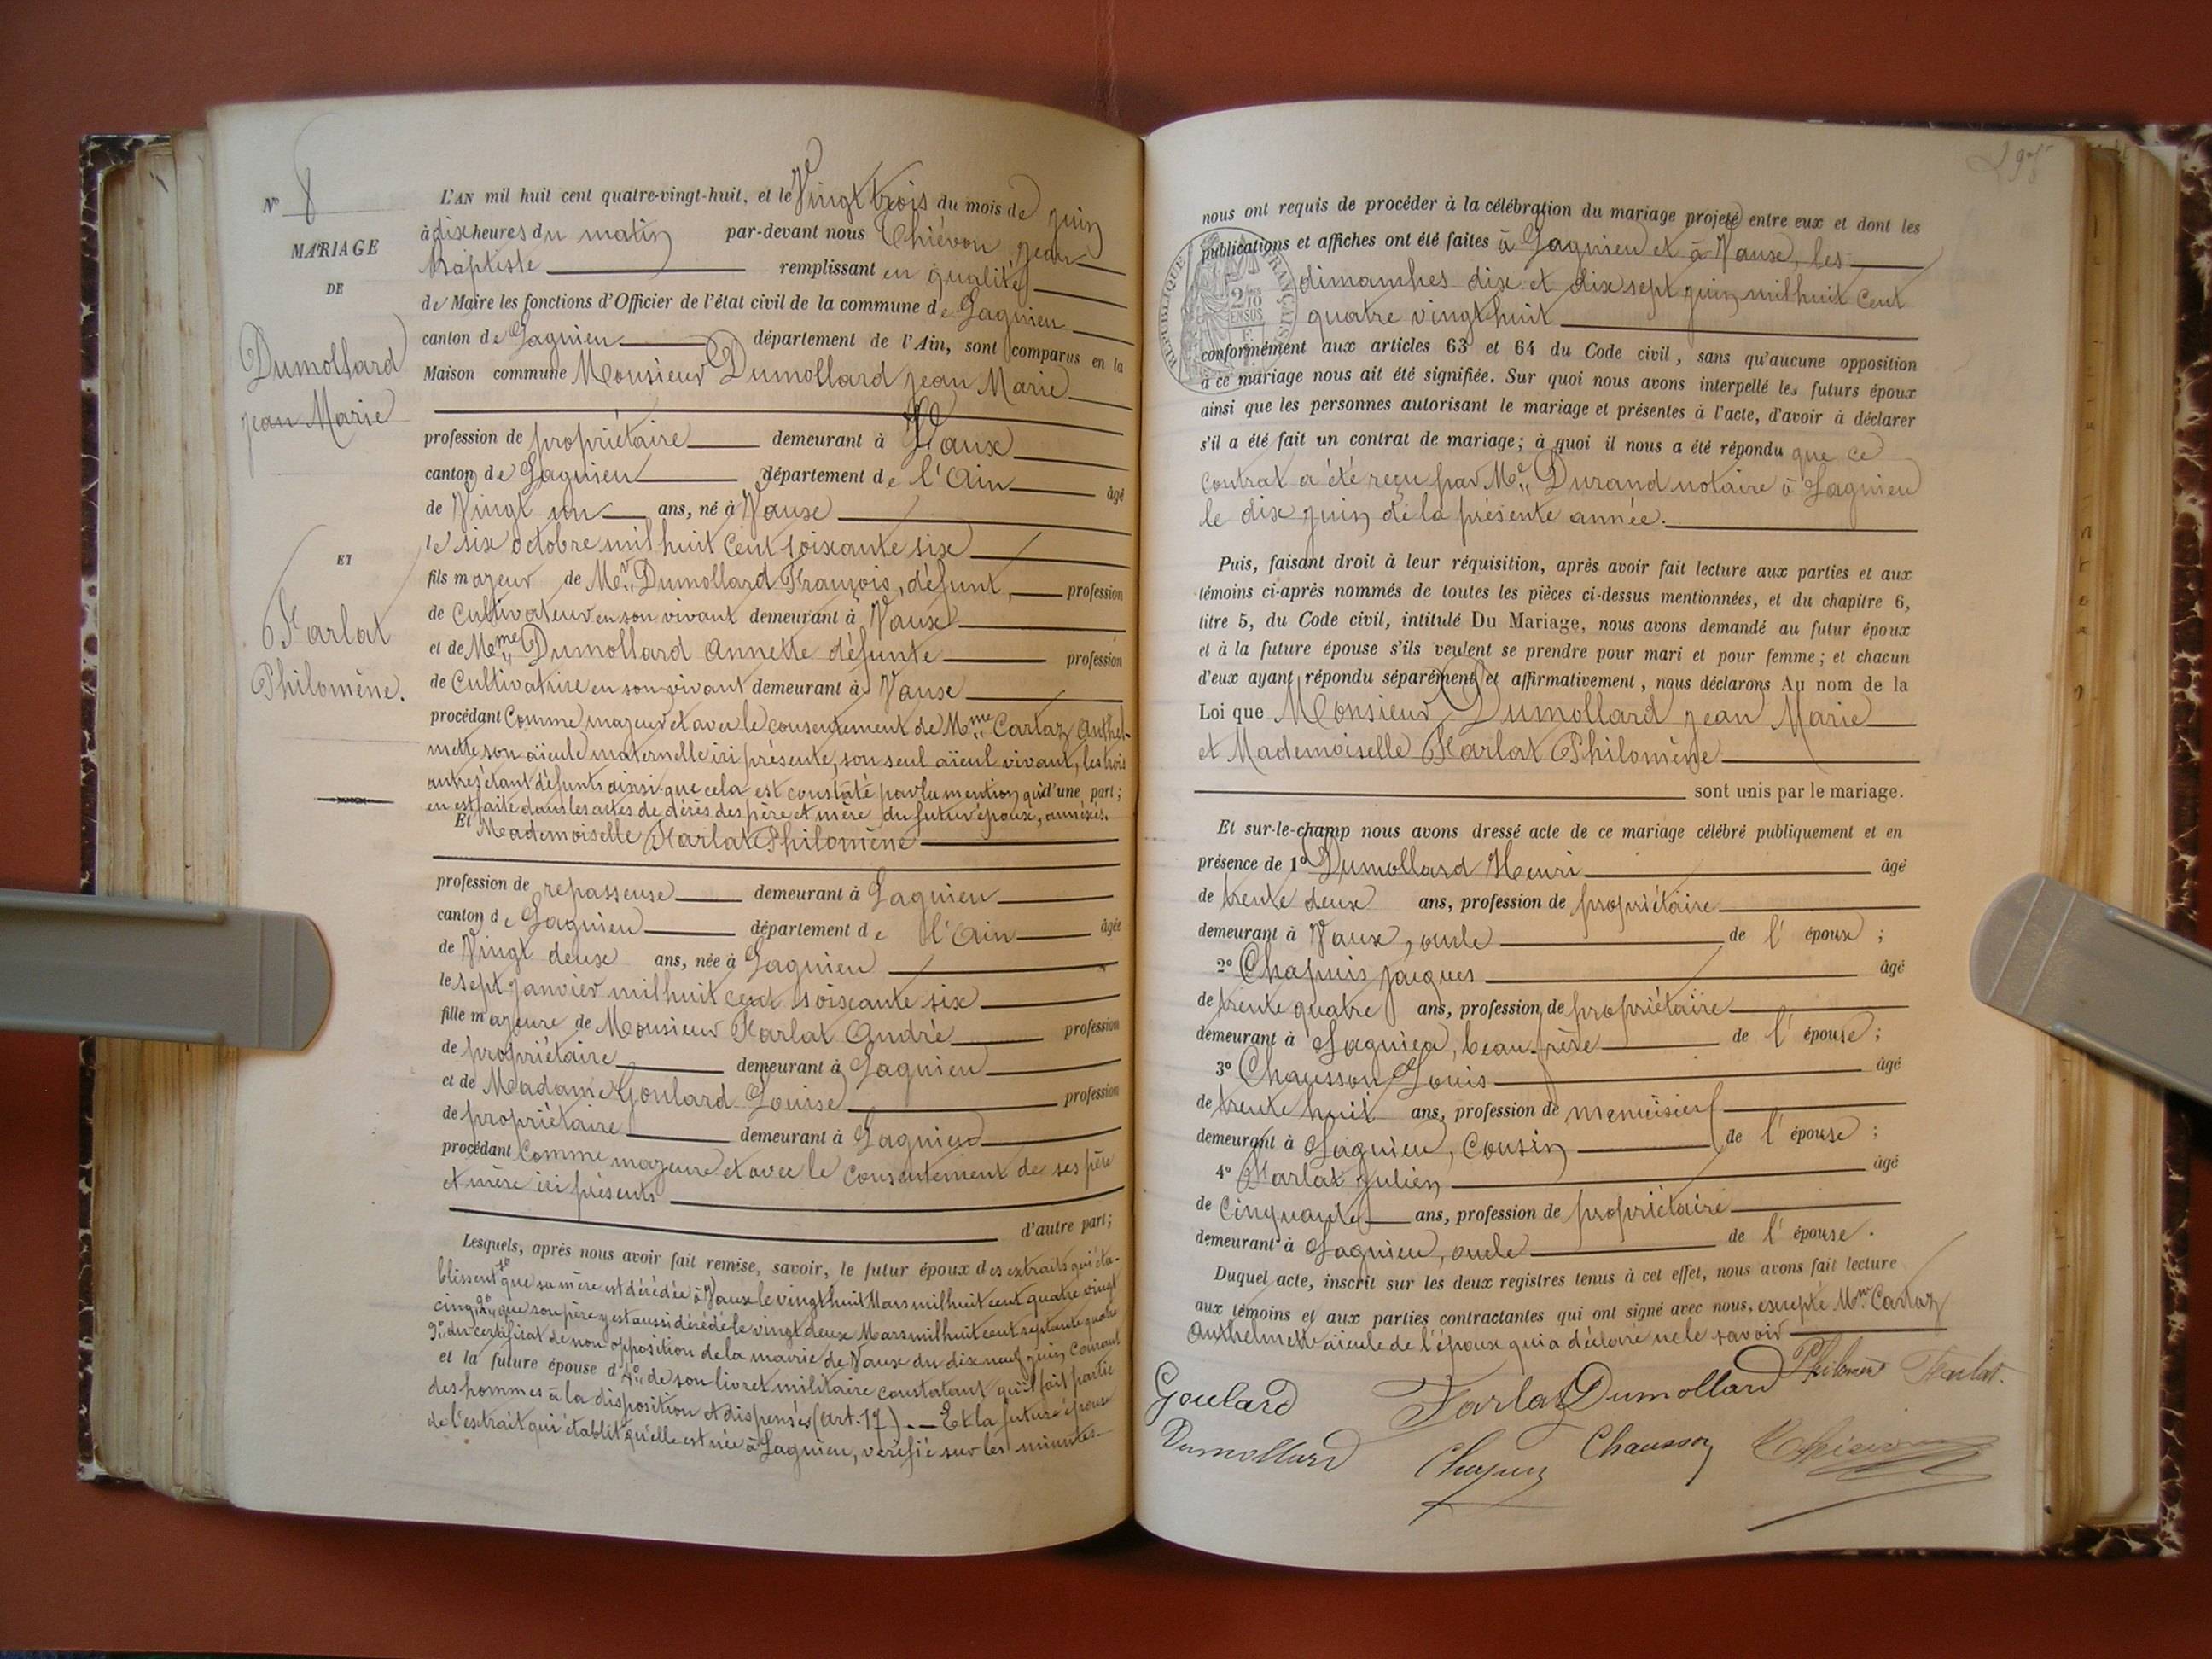 N° 8
MARIAGE
DE
Dumollard
Jean Marie
ET
Farlat
Philomène.
L'AN mil huit cent quatre-vingt-huit, et le Vingt trois du mois de juin
à dix heures du matin par-devant nous Thiévon Jean
Baptiste remplissant en qualité
de Maire les fonctions d'Officier de l'état civil de la commune de Lagnieu
canton de Lagnieu département de l'Ain, sont comparus en la
Maison commune Monsieur Dumollard Jean Marie
profession de propriétaire demeurant à Vaux
canton de Lagnieu département de l'Ain âgé
de Vingt un ans, né à Vaux
le six octobre mil huit cent soixante six
fils majeur de Mr Dumollard François, défunt, profession
de Cultivateur en son vivant demeurant à Vaux
et de Mme Dumollard Annette défunte profession
de Cultivatrice en son vivant demeurant à Vaux
procédant Comme majeur et avec le consentement de Mme Cartaz Anthel-
mette son aïeule maternelle ici présente, son seul aïeul vivant, les trois
autres étant défunts ainsi que cela est constaté par la mention qui d'une part;
en est faite dans les actes de décès des père et mère du futur époux, annexés.
Et Mademoiselle Farlat Philomène
profession de repasseuse demeurant à Lagnieu
canton de Lagnieu département de l'Ain âgée
de Vingt deux ans, née à Lagnieu
le sept janvier mil huit cent soixante six
fille majeure de Monsieur Farlat André profession
de propriétaire demeurant à Lagnieu
et de Madame Goulard Louise profession
de propriétaire demeurant à Lagnieu
procédant Comme majeure et avec le consentement de ses père
et mère ici présents
d'autre part;
Lesquels, après nous avoir fait remise, savoir, le futur époux des extraits qui éta-
blissent 1° que sa mère est décédée à Vaux le vingt huit Mars mil huit cent quatre vingt
cinq, 2° que son père y est aussi décédé le vingt deux Mars mil huit cent septante quatre
3° du certificat de non opposition de la mairie de Vaux du dix neuf juin courant
et la future épouse d 4° de son livret militaire constatant qu'il fait partie
des hommes à la disposition et dispensés (art. 17). — Et la future épouse
de l'extrait qui établit qu'elle est née à Lagnieu, vérifié sur les minutes
nous ont requis de procéder à la célébration du mariage projeté entre eux et dont les
publications et affiches ont été faites à Lagnieu et à Vaux, les
dimanches dix et dix sept juin mil huit cent
quatre vingt huit
conformément aux articles 63 et 64 du Code civil, sans qu'aucune opposition
à ce mariage nous ait été signifiée. Sur quoi nous avons interpellé les futurs époux
ainsi que les personnes autorisant le mariage et présentes à l'acte, d'avoir à déclarer
s'il a été fait un contrat de mariage; à quoi il nous a été répondu que ce
contrat a été reçu par Me Durand notaire à Lagnieu
le dix juin de la présente année.
Puis, faisant droit à leur réquisition, après avoir fait lecture aux parties et aux
témoins ci-après nommés de toutes les pièces ci-dessus mentionnées, et du chapitre 6,
titre 5, du Code civil, intitulé Du Mariage, nous avons demandé au futur époux
et à la future épouse s'ils veulent se prendre pour mari et pour femme; et chacun
d'eux ayant répondu séparément et affirmativement, nous déclarons Au nom de la
Loi que Monsieur Dumollard Jean Marie
et Mademoiselle Farlat Philomène
sont unis par le mariage.
Et sur-le-champ nous avons dressé acte de ce mariage célébré publiquement et en
présence de 1° Dumollard Henri âgé
de trente deux ans, profession de propriétaire
demeurant à Vaux, oncle de l'époux;
2° Chapuis Jacques âgé
de trente quatre ans, profession de propriétaire
demeurant à Lagnieu, beau-frère de l'épouse;
3° Chausson Louis âgé
de trente huit ans, profession de menuisier
demeurant à Lagnieu, Cousin de l'épouse;
4° Farlat Julien âgé
de Cinquante ans, profession de propriétaire
demeurant à Lagnieu, oncle de l'épouse.
Duquel acte, inscrit sur les deux registres tenus à cet effet, nous avons fait lecture
aux témoins et aux parties contractantes qui ont signé avec nous, excepté Mme Cartaz
Anthelmette aïeule de l'époux qui a déclaré ne le savoir
Goulard Farlat Dumollard Philomène Farlat.
Dumollard Chapuis Chausson Thiévon